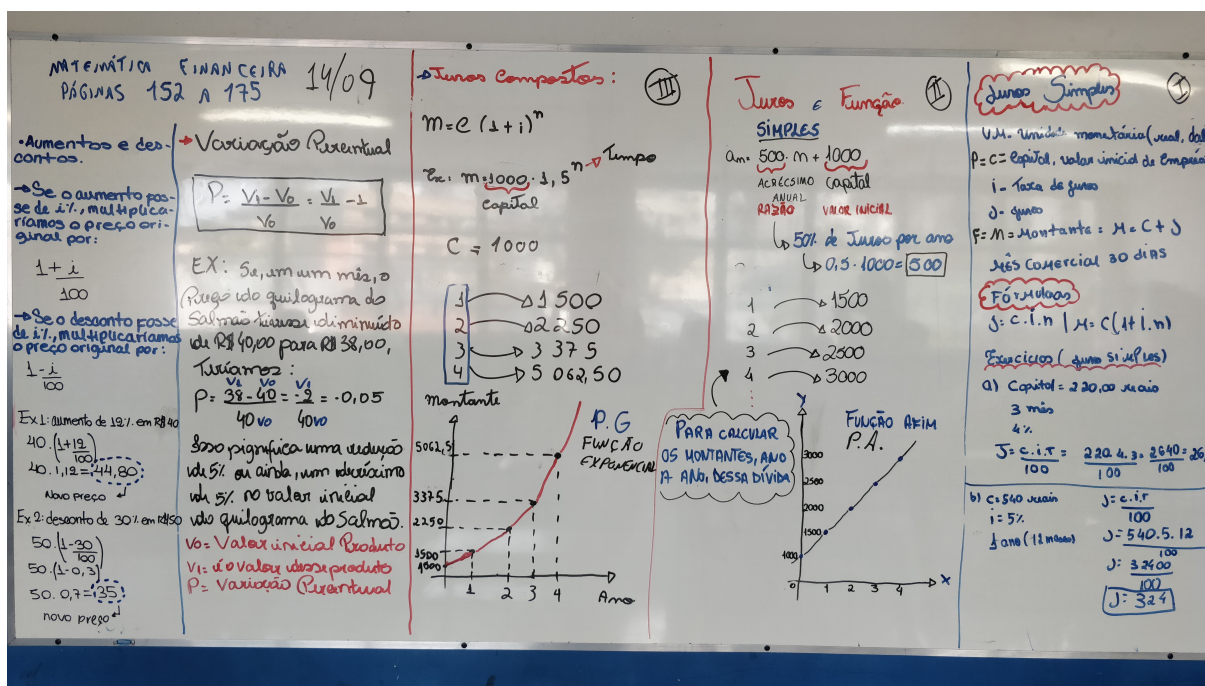 MATEMÁTICA FINANCEIRA 14/09
PÁGINAS 152 A 175
•Aumentos e des-
contos.
→Se o aumento fos-
se de i%, multiplica-
ríamos o preço ori-
ginal por:
1 + i
100
→Se o desconto fosse
de i%, multiplicaríamos
o preço original por:
1 - i
100
Ex 1: aumento de 12% em R$ 40
40.(1+12)
100
40.1,12=44,80
Novo preço
Ex 2: desconto de 30% em R$ 50
50.(1-30)
100
50.(1-0,3)
50.0,7=35
novo preço
→Variação Percentual
P= V1-V0 = V1 -1
V0 V0
EX: Se, em um mês, o
Preço do quilograma do
Salmão tivesse diminuído
de R$ 40,00 para R$ 38,00,
Teríamos:
V1 V0 V1
P= 38-40 = -2 = -0,05
40 V0 40 V0
Isso significa uma redução
de 5% ou ainda, um decréscimo
de 5% no valor inicial
do quilograma do Salmão.
V0= Valor inicial Produto
V1= é o valor desse produto
P= Variação Percentual
→Juros Compostos: III
M=C (1+i)ⁿ
Ex: M=1000.1,5ⁿ → Tempo
Capital
C = 1000
1 → 1 500
2 → 2 250
3 → 3 375
4 → 5 062,50
montante
P.G
FUNÇÃO
EXPONENCIAL
5062,5
3375
2250
1500
1000
1 2 3 4 Ano
Juros e Função II
SIMPLES
an= 500.n + 1000
ACRÉCSIMO Capital
ANUAL
RAZÃO VALOR INICIAL
50% de Juros por ano
0,5.1000= 500
1 → 1500
2 → 2000
3 → 2500
4 → 3000
PARA CALCULAR
OS MONTANTES, ANO
A ANO, DESSA DÍVIDA
Y
FUNÇÃO AFIM
P.A.
3000
2500
2000
1500
1000
0 1 2 3 4 X
Juros Simples I
U.M= Unidade monetária (real,
P=C= Capital, valor inicial de
i- Taxa de juros
J- juros
F=M= Montante = M=C+J
MÊS COMERCIAL 30 DIAS
FÓRMULAS
J=C.i.n | M=C(1+i.n)
Exercícios (juros SIMPLES)
a) Capital= 220,00 reais
3 mês
4%
J= C.i.T = 220.4.3 = 2640 = 26,
100 100 100
b) C=540 reais
i=5%
1 ano (12 meses)
J= C.i.T
100
J= 540.5.12
100
J= 32400
100
J= 324